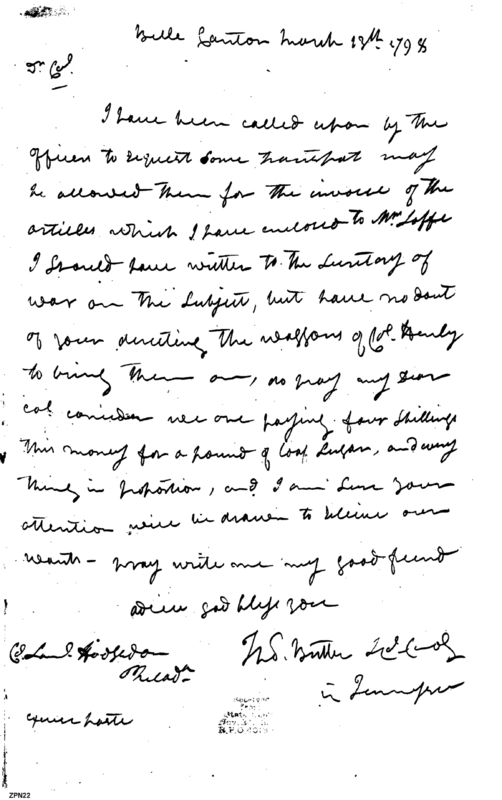 Belle Canton March 13th 1798
Dr Col.
I have been called upon by the
officers to request some transport may
be allowed them for the invoice of the
articles which I have enclosed to Mr
I Should have written to the Secretary of
war on the Subject, but have no dout
of your directing the waggons of Col. Henly
to bring them on, do pray my Dear
Col consider we are paying four Shillings
this money for a pound of loaf Sugar, and every
thing in proportion, and I am Sure your
attention will be drawn to relieve our
wants - pray write me my good friend
adieu god bless you
Col Saml. Hodgdon
Philada
Thos. Butler Lt Col Comdg
in Tennessee
excuse haste
ZPN22